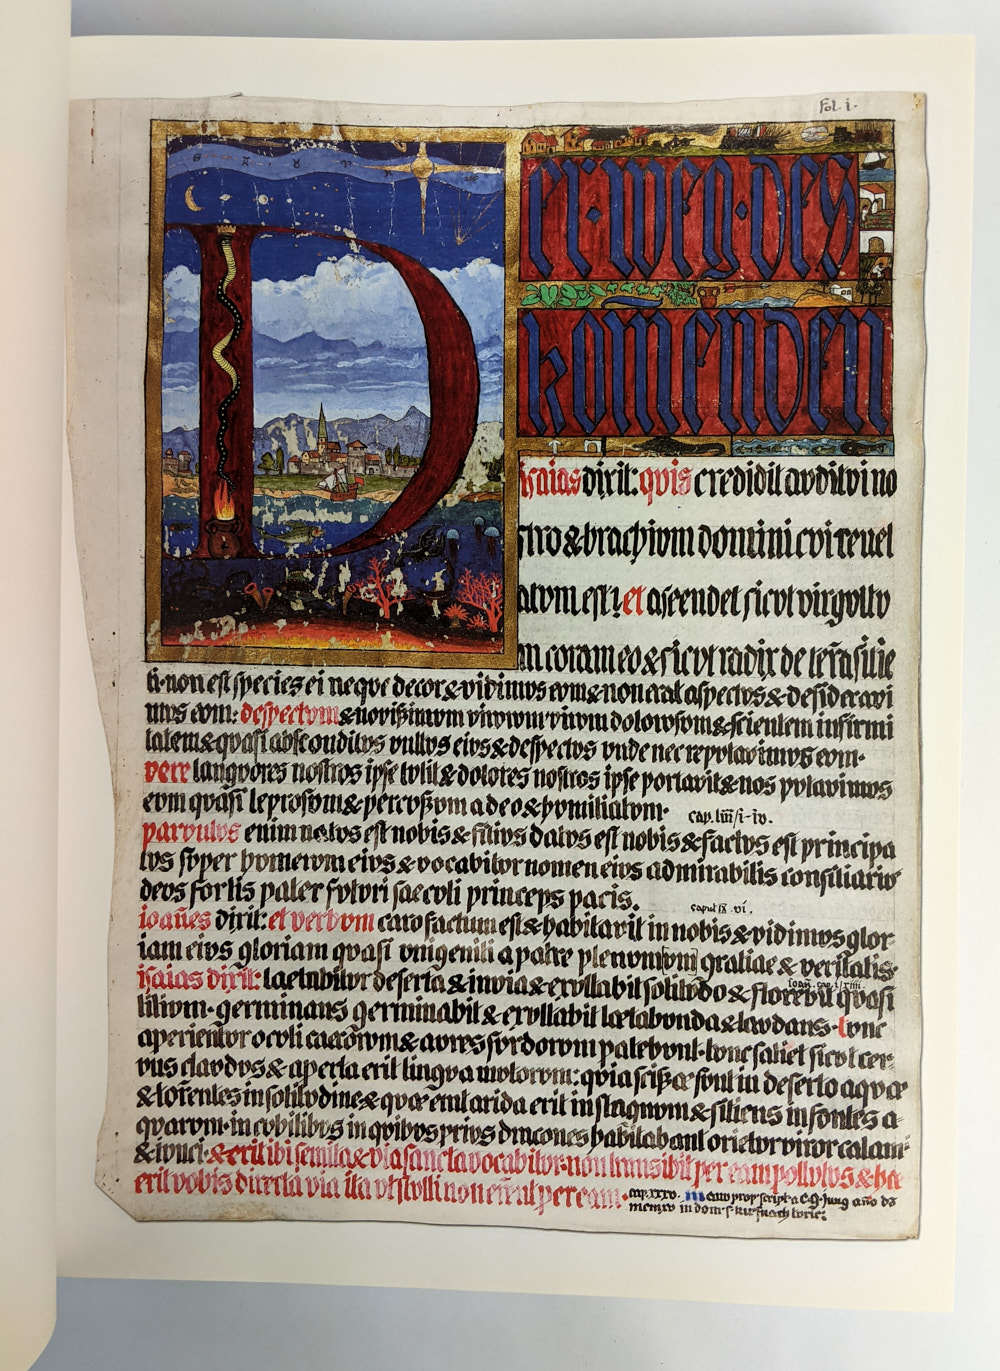 Fol. i.
Der · weg · des
komenden
isaias dixit: quis credidit auditui no
stro & brachium domini cui revel
atum est? et ascendet sicut virgultu
m coram eo & sicut radix de terra sitie
ti · non est species ei neque decor & vidimus eum & non erat aspectus & desideravi
mus eum: despectum & novissimum virorum virum dolorosum & scientem infirmi
tatem & quasi absconditus vultus eius & despectus unde nec reputavimus eum ·
vere languores nostros ipse tulit & dolores nostros ipse portavit & nos putavimus
eum quasi leprosum & percussum a deo & humiliatum · cap. liii/i-iv.
parvulus enim natus est nobis & filius datus est nobis & factus est principa
tus super humerum eius & vocabitur nomen eius admirabilis consiliarius
deus fortis pater futuri saeculi princeps pacis. caput ix . vi.
ioañes dixit: et verbum caro factum est & habitavit in nobis & vidimus glor-
iam eius gloriam quasi unigeniti a patre plenum gratiae & veritatis · ioañ. cap. i/xiiii.
isaias dixit: laetabitur deserta & invia & exultabit solitudo & florebit quasi
lilium · germinans germinabit & exultabit lætabunda & laudans · tunc
aperientur oculi caecorum & aures surdorum patebunt · tunc saliet sicut cer-
vus claudus & aperta erit lingua mutorum: quia scissæ sunt in deserto aquæ
& torrentes in solitudine & quæ erat arida erit in stagnum & sitiens in fontes a-
quarum · in cubilibus in quibus prius dracones habitabant orietur viror calami
& iunci · & erit ibi semita & via sancta vocabitur · non transibit per eam pollutus & hæc
erit vobis directa via ita ut stulti non errent per eam · cap. xxxv. manu propr script a C. G. Jung año dõ
mcmxv in domu s. küsnach turic: